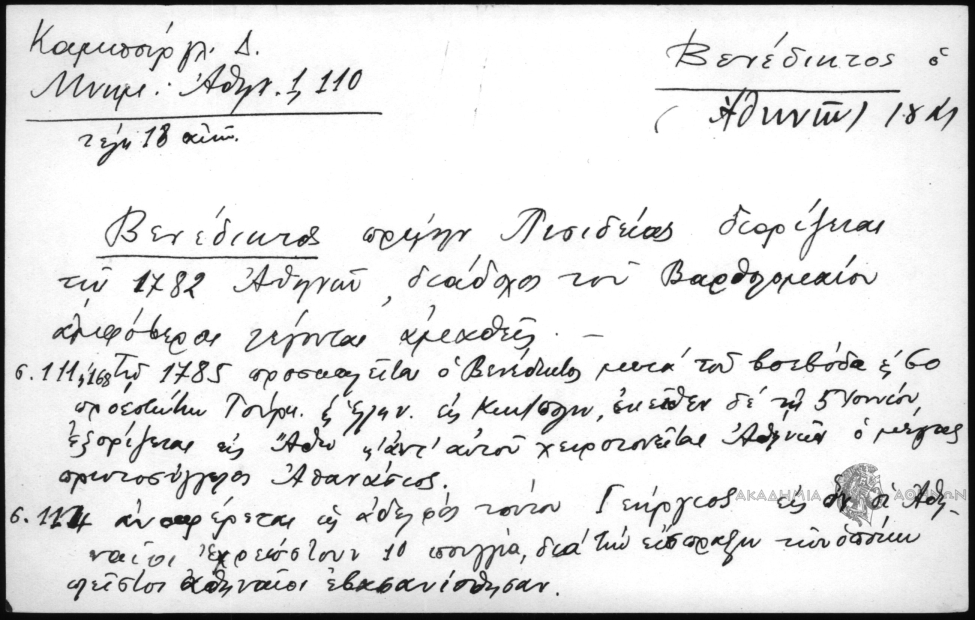 Καμπούρογλ. Δ.
Μνημ. Ἀθην. 1, 110
τέλη 18 αἰῶν.
Βενέδικτος ὁ
(Ἀθηνῶν)
Βενέδικτος πρώην Πισιδείας διορίζεται
τῷ 1782 Ἀθηνῶν, διάδοχος τοῦ Βαρθολομαίου
ἀμφότεροι λέγονται ἀμαθεῖς. —
σ. 111, 168 Τῷ 1785 προσκαλεῖται ὁ Βενέδικτος μετὰ τοῦ βοεβόδα ἐξ 60
προεστώτων Τούρκ. ἢ Ἑλλην. εἰς Κων/πολιν, ἐκεῖθεν δὲ τῇ 5 Ἰουνίου
ἐξορίζεται εἰς Ἄθω κ' ἀντ' αὐτοῦ χειροτονεῖται Ἀθηνῶν ὁ μέγας
πρωτοσύγγελος Ἀθανάσιος.
σ. 114 ἀναφέρεται ὡς ἀδελφὸς τούτου Γεώργιος εἰς ὃν οἱ Ἀθη-
ναῖοι ἐχρεώστουν 10 πουγγία, διὰ τὴν εἴσπραξιν τῶν ὁποίων
πλεῖστοι Ἀθηναῖοι ἐβασανίσθησαν.
ΑΚΑΔΗΜΙΑ ΑΘΗΝΩΝ